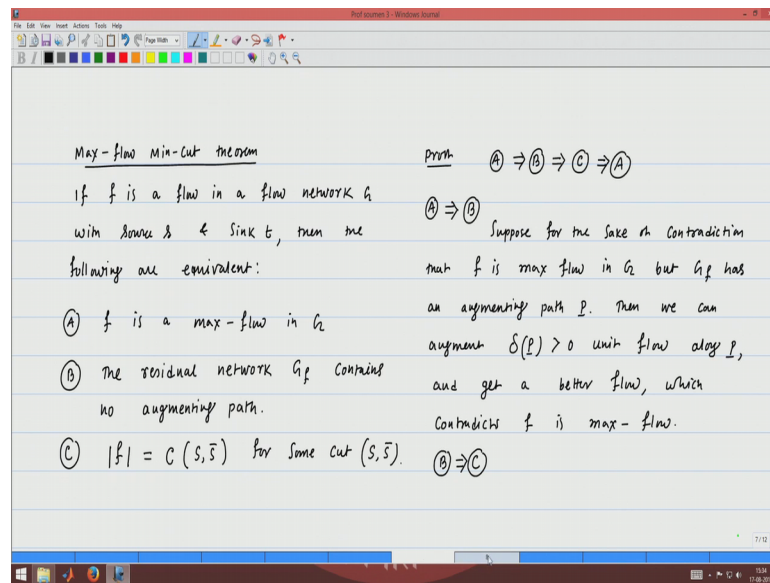 Prof soumen 3 - Windows Journal
File Edit View Insert Actions Tools Help
Page Width
B I
Max-flow Min-cut theorem
If f is a flow in a flow network G
with source s & sink t, then the
following are equivalent:
(A) f is a max-flow in G
(B) The residual network Gf contains
no augmenting path.
(C) |f| = C (S, S̄) for some cut (S, S̄).
Proof (A) ⇒ (B) ⇒ (C) ⇒ (A)
(A) ⇒ (B)
Suppose for the sake of contradiction
that f is max flow in G but Gf has
an augmenting path P. Then we can
augment δ(P) > 0 unit flow along P,
and get a better flow, which
contradicts f is max-flow.
(B) ⇒ (C)
7/12
15:34